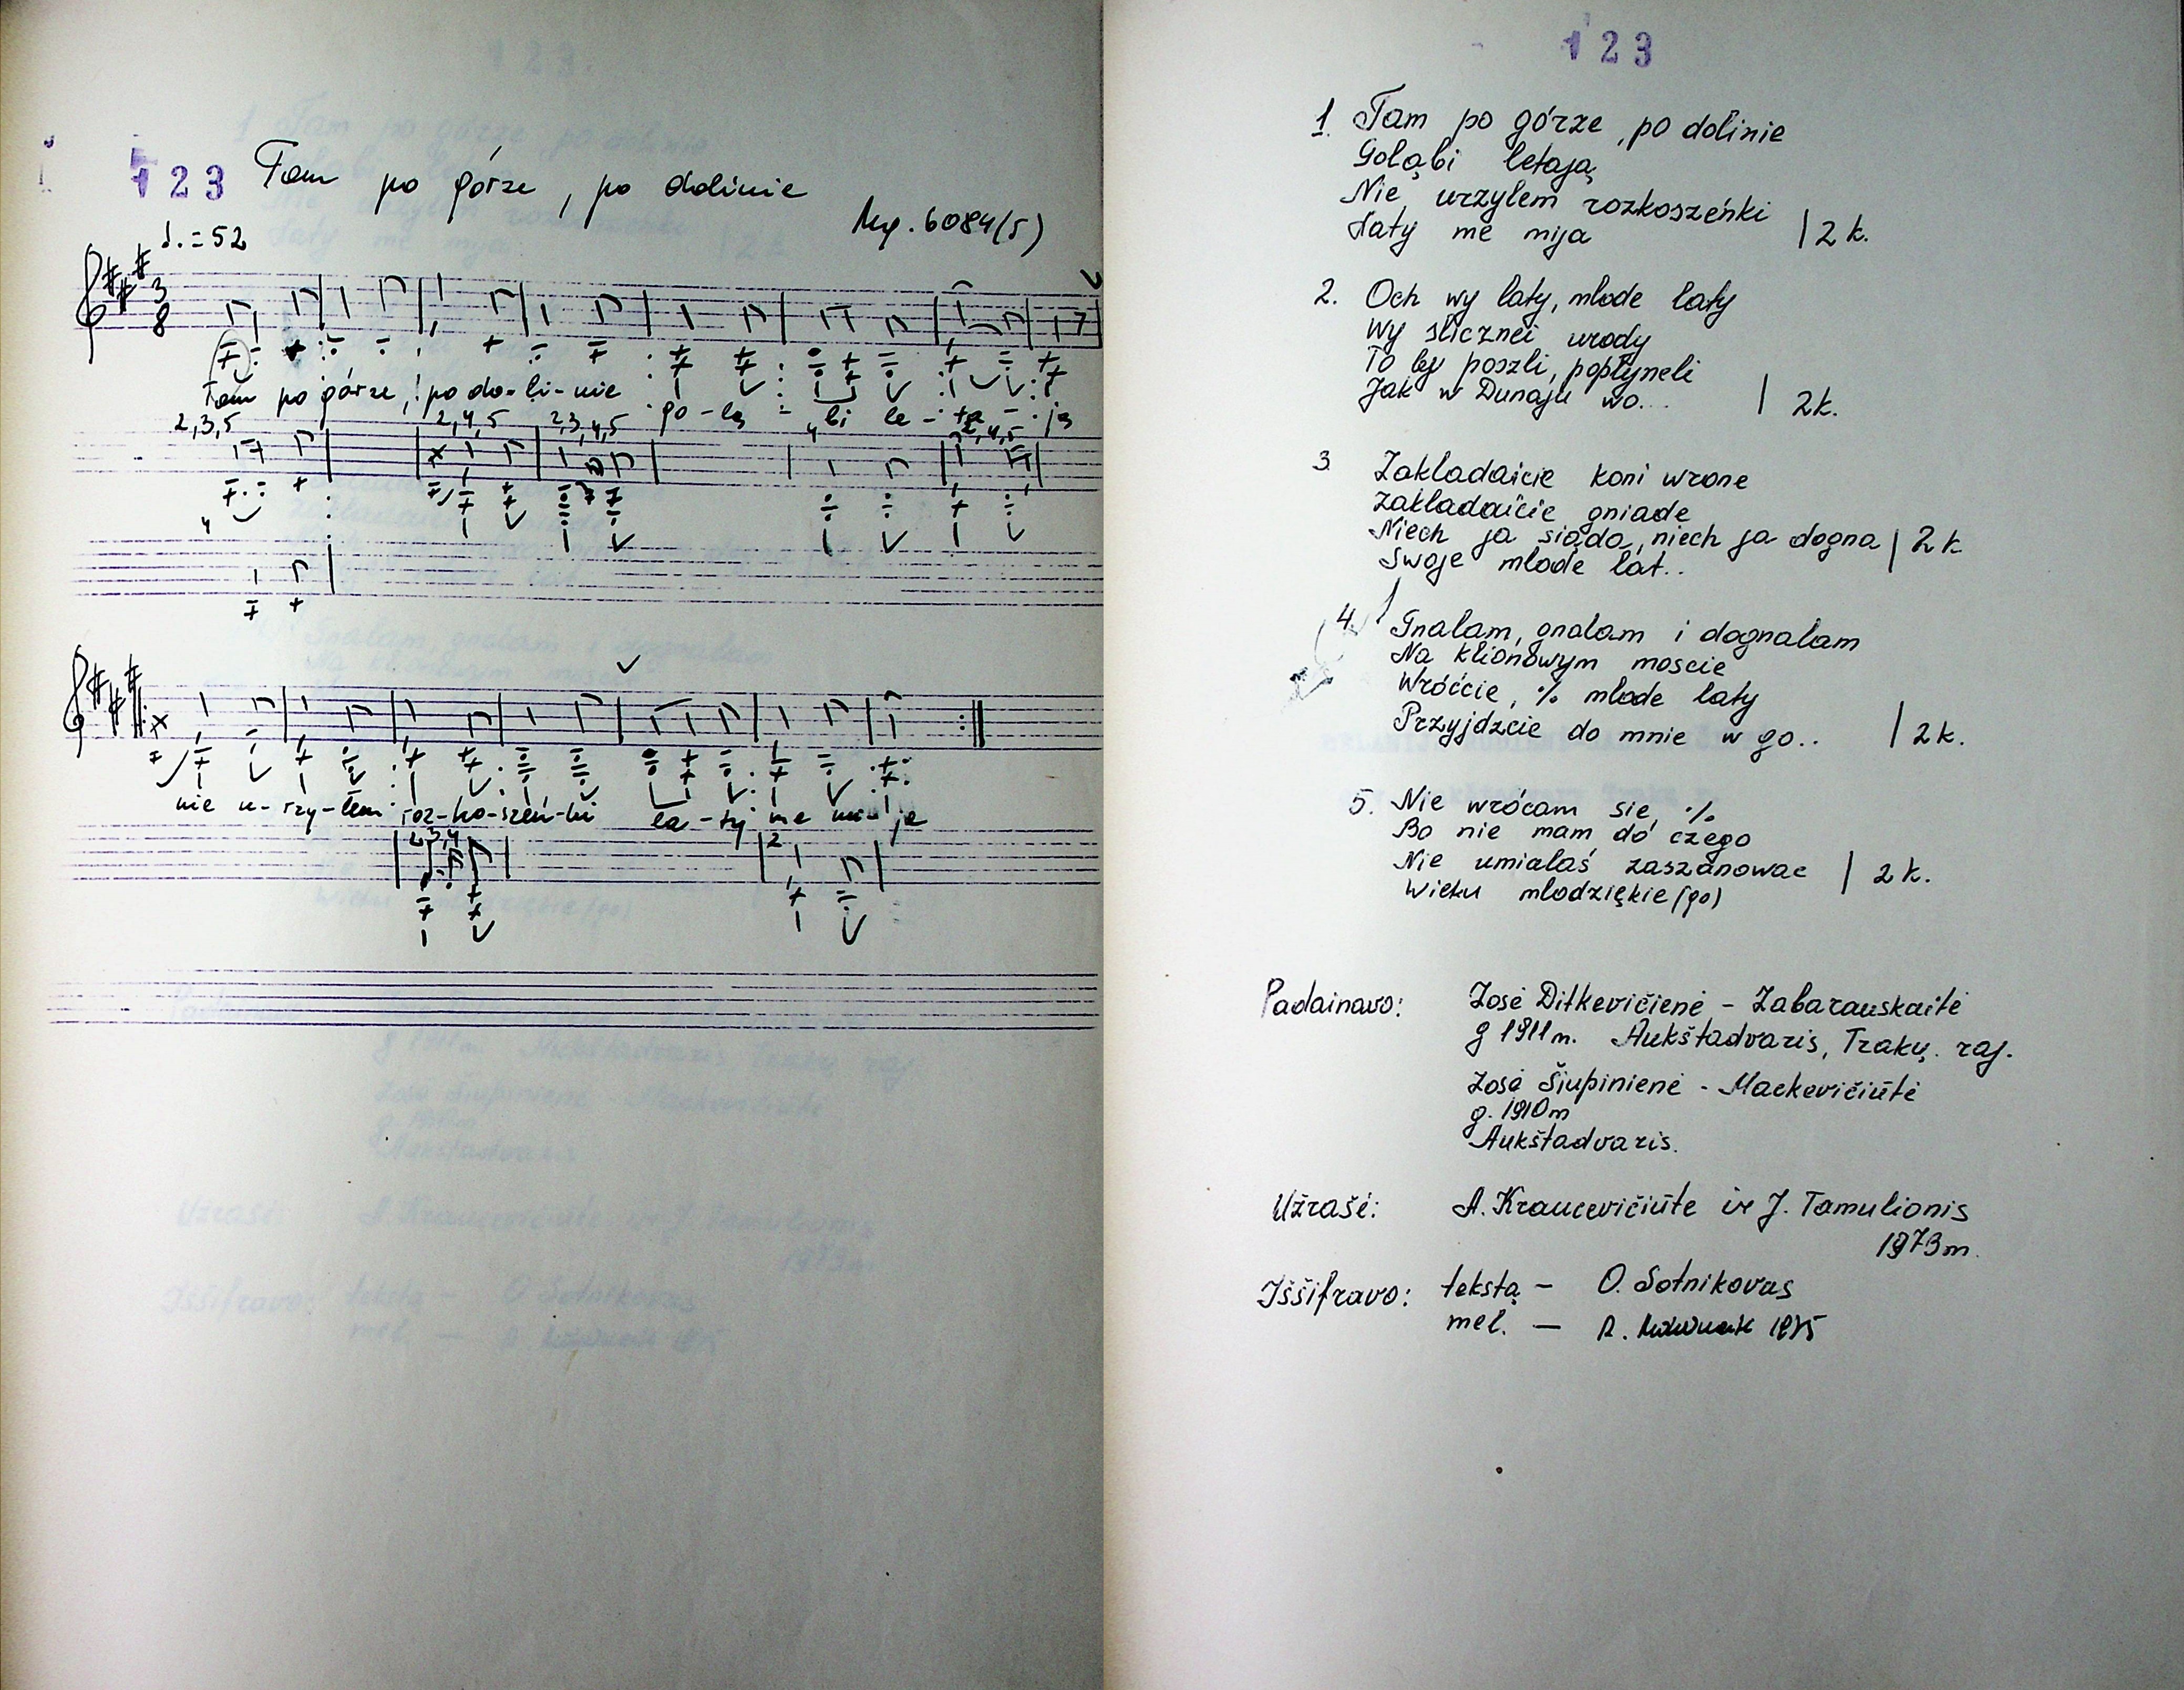 123 Tam po górze, po dolinie
Mg. 6084(5)
♩. = 52
3
8
Tam po górze, po do-li-nie go-łą-bi le-ta-ją
2,3,5 2,4,5 2,3,4,5 4 2,4,5
4
nie u-rzy-łem roz-ko-szeń-ki la-ty me mi-ja
2,3,4 2
123
1. Tam po górze, po dolinie
Goląbi letają
Nie urzylem rozkoszeńki
Laty me mija | 2 k.
2. Och wy laty, mlode laty
Wy slicznei urody
To by poszli, poplyneli
Jak w Dunaju wo... | 2k.
3. Zakladaicie koni wrone
Zakladaicie gniade
Niech ja siądo, niech ja dogna | 2 k
Swoje mlode lat..
4. Gnalam, gnalam i dognalam
Na klionowym moscie
Wróćcie, % mlode laty
Przyjdzcie do mnie w go.. | 2 k.
5. Nie wrócam sie, %
Bo nie mam do czego
Nie umialaś zaszanowac | 2 k.
Wieku mlodziękie(go)
Padainavo: Zosė Ditkevičienė - Zabarauskaitė
g 1911 m. Aukštadvaris, Trakų. raj.
Zosė Šiupinienė - Mackevičiūtė
g. 1910m
Aukštadvaris.
Užrašė: A. Kraucevičiūte ir J. Tamulionis
1973 m.
Iššifravo: tekstą - O. Sotnikovas
mel. — 1975